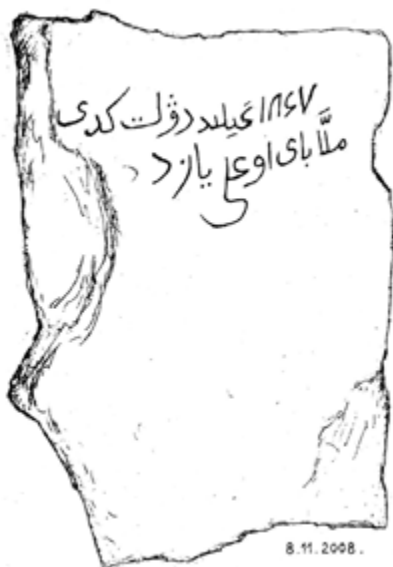 ۱۸۶۷ عیلد دۆلت کدی
ملّا بای اوعلی یازد
8.11.2008.